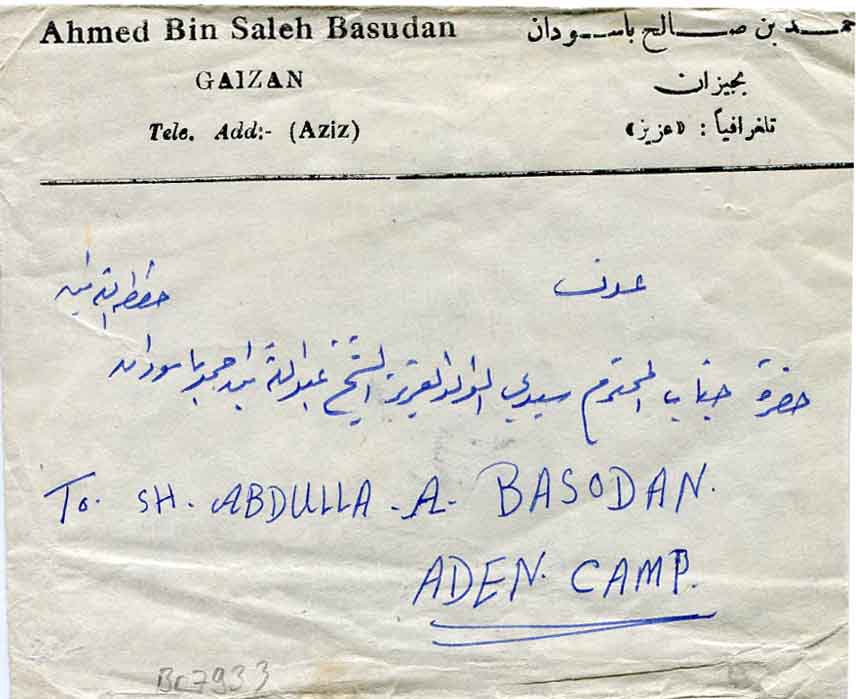 Ahmed Bin Saleh Basudan
حمد بن صالح باسودان
GAIZAN
بجيزان
Tele. Add:- (Aziz)
تلغرافياً : «عزيز»
عدن
حفظه الله آمين
حضرة جناب المحترم سيدي الوالد العزيز الشيخ عبدالله بن احمد باسودان
To. SH. ABDULLA . A. BASODAN.
ADEN. CAMP.
Bc7933